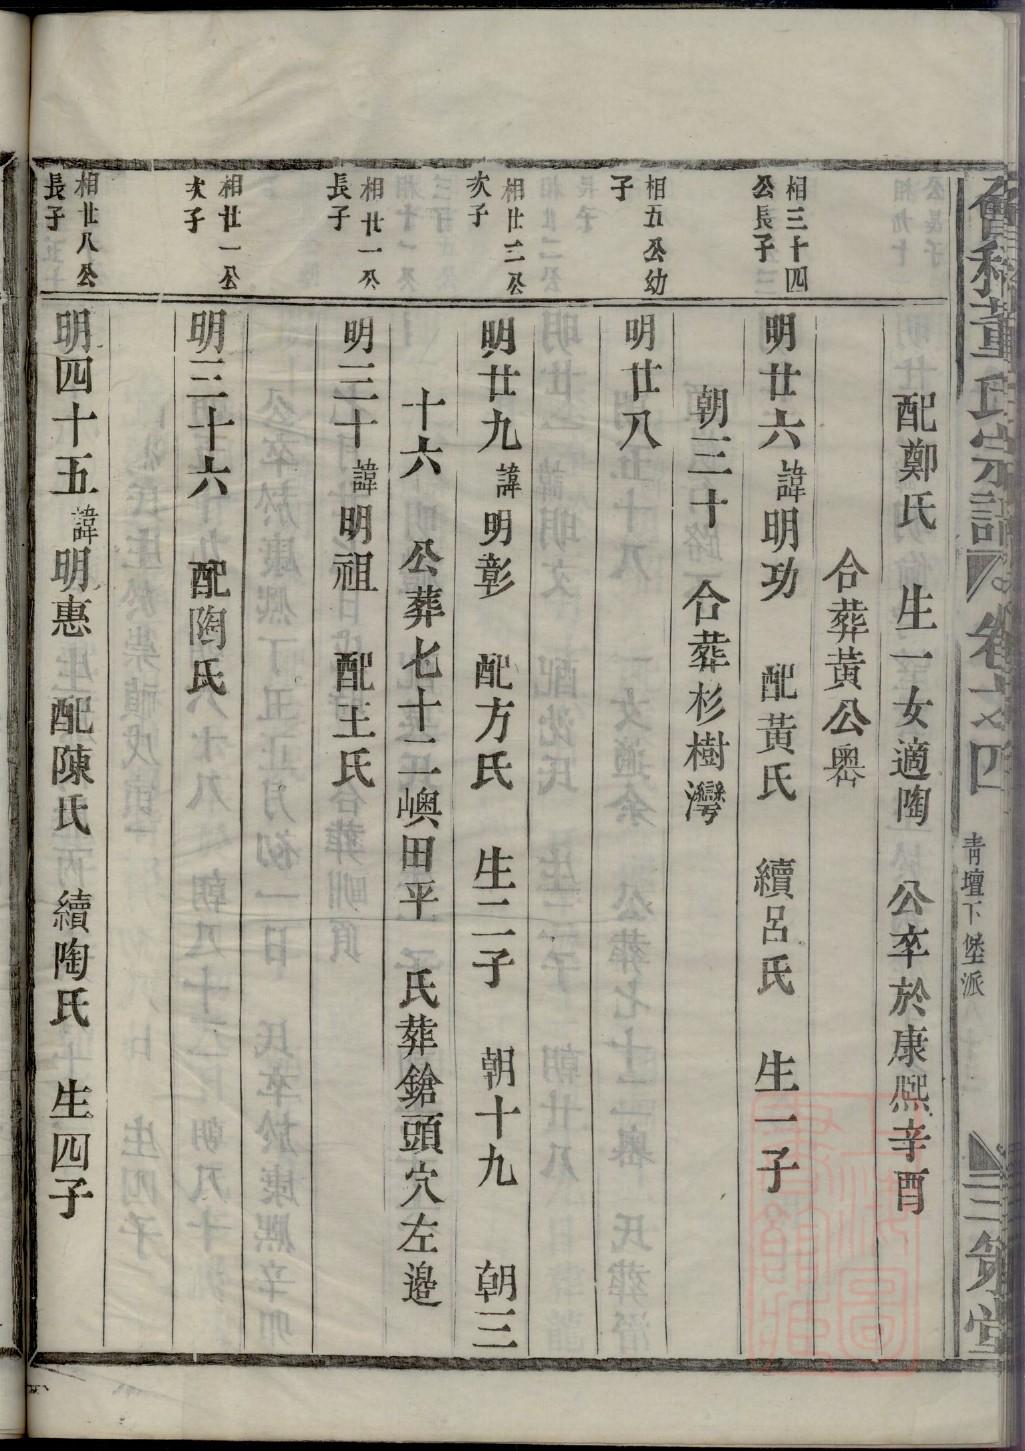 董氏宗譜
青壇下堡派
三策堂
配鄭氏 生一女適陶 公卒於康熙辛酉
合葬黃公嶴
相三十四公長子
明廿六 諱明功 配黃氏 續呂氏 生一子
朝三十 合葬杉樹灣
相五公幼子
明廿八
相廿二公次子
明廿九 諱明彰 配方氏 生二子 朝十九 朝三
十六 公葬七十二嶼田平 氏葬鎗頭穴左邉
相廿一公長子
明三十 諱明祖 配王氏
相廿一公次子
明三十六 配陶氏
相廿八公長子
明四十五 諱明惠 配陳氏 續陶氏 生四子